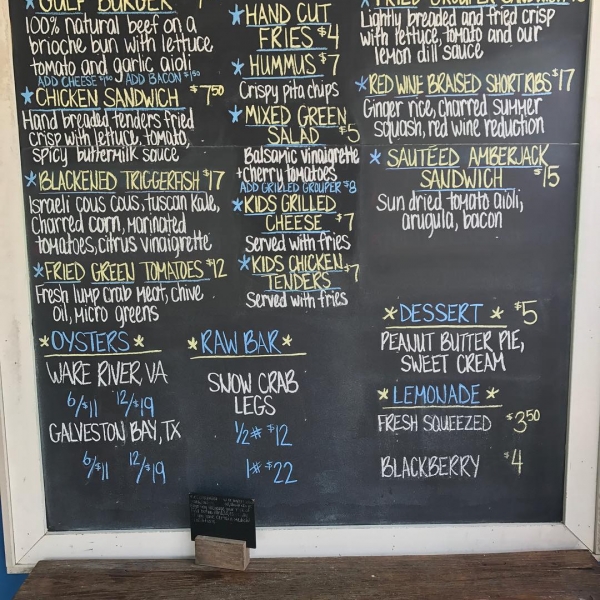 GULF BURGER
100% natural beef on a
brioche bun with lettuce
tomato and garlic aioli
ADD CHEESE $1.50 ADD BACON $1.50
CHICKEN SANDWICH $7.50
Hand breaded tenders fried
crisp with lettuce, tomato,
spicy buttermilk sauce
BLACKENED TRIGGERFISH $17
Israeli cous cous, tuscan kale,
charred corn, marinated
tomatoes, citrus vinaigrette
FRIED GREEN TOMATOES $12
Fresh lump crab meat, chive
oil, micro greens
HAND CUT
FRIES $4
HUMMUS $7
Crispy pita chips
MIXED GREEN
SALAD $5
Balsamic vinaigrette
+cherry tomatoes
ADD GRILLED GROUPER $8
KIDS GRILLED
CHEESE $7
Served with fries
KIDS CHICKEN
TENDERS $7
Served with fries
FRIED GROUPER SANDWICH
Lightly breaded and fried crisp
with lettuce, tomato and our
lemon dill sauce
RED WINE BRAISED SHORT RIBS $17
Ginger rice, charred summer
squash, red wine reduction
SAUTÉED AMBERJACK
SANDWICH $15
Sun dried tomato aioli,
arugula, bacon
OYSTERS
WARE RIVER, VA
6/$11 12/$19
GALVESTON BAY, TX
6/$11 12/$19
RAW BAR
SNOW CRAB
LEGS
1/2# $12
1# $22
DESSERT $5
PEANUT BUTTER PIE,
SWEET CREAM
LEMONADE
FRESH SQUEEZED $3.50
BLACKBERRY $4